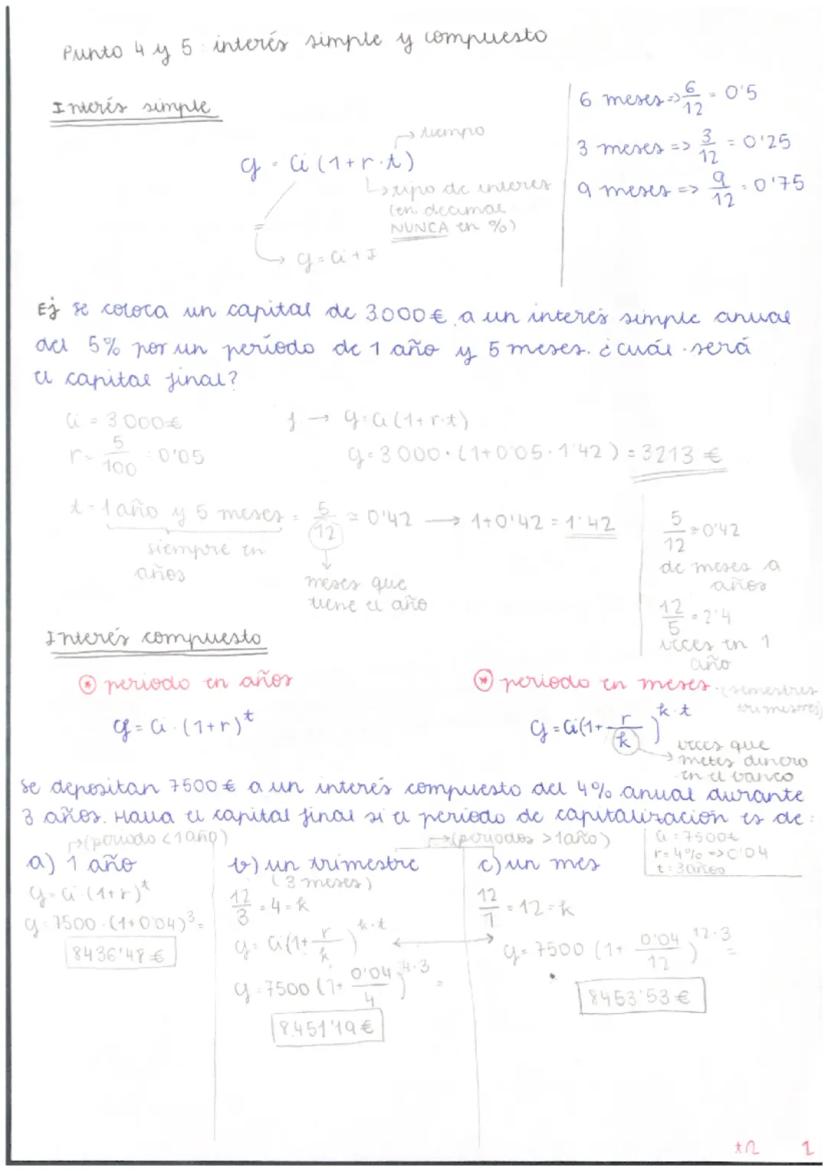 Punto 4 y 5: interés simple y compuesto
Interés simple
Cf = Ci (1+r·t)
→ tiempo
↳ tipo de interes
(en decimal
NUNCA en %)
=
→ Cf = Ci + I
6 meses => 6/12 = 0'5
3 meses => 3/12 = 0'25
9 meses => 9/12 = 0'75
Ej se coloca un capital de 3000€ a un interés simple anual
del 5% por un período de 1 año y 5 meses. ¿Cuál será
el capital final?
Ci = 3000€
r = 5/100 = 0'05
f → Cf = Ci (1+r·t)
Cf = 3000 · (1+0'05 · 1'42) = 3213 €
t = 1 año y 5 meses = 5/12 ≈ 0'42 → 1+0'42 = 1'42
siempre en
años
meses que
tiene el año
5/12 = 0'42
de meses a
años
12/5 = 2'4
veces en 1
año
Interés compuesto
* periodo en años
Cf = Ci · (1+r)^t
* periodo en meses. (semestres
trimestres)
Cf = Ci (1+ r/k)^k·t
→ veces que
metes dinero
en el banco
se depositan 7500€ a un interés compuesto del 4% anual durante
3 años. Halla el capital final si el periodo de capitalización es de:
→ (periodo < 1 año)
→ (periodos > 1 año)
Ci = 7500€
r = 4% -> 0'04
t = 3 años
a) 1 año
Cf = Ci · (1+r)^t
Cf = 7500 · (1+0'04)^3 =
8436'48 €
b) un trimestre
(3 meses)
12/3 = 4 = k
Cf = Ci (1+ r/k)^k·t
Cf = 7500 (1+ 0'04/4)^4·3 =
8.451'19 €
c) un mes
12/1 = 12 = k
Cf = 7500 (1+ 0'04/12)^12·3 =
8453'53 €
1